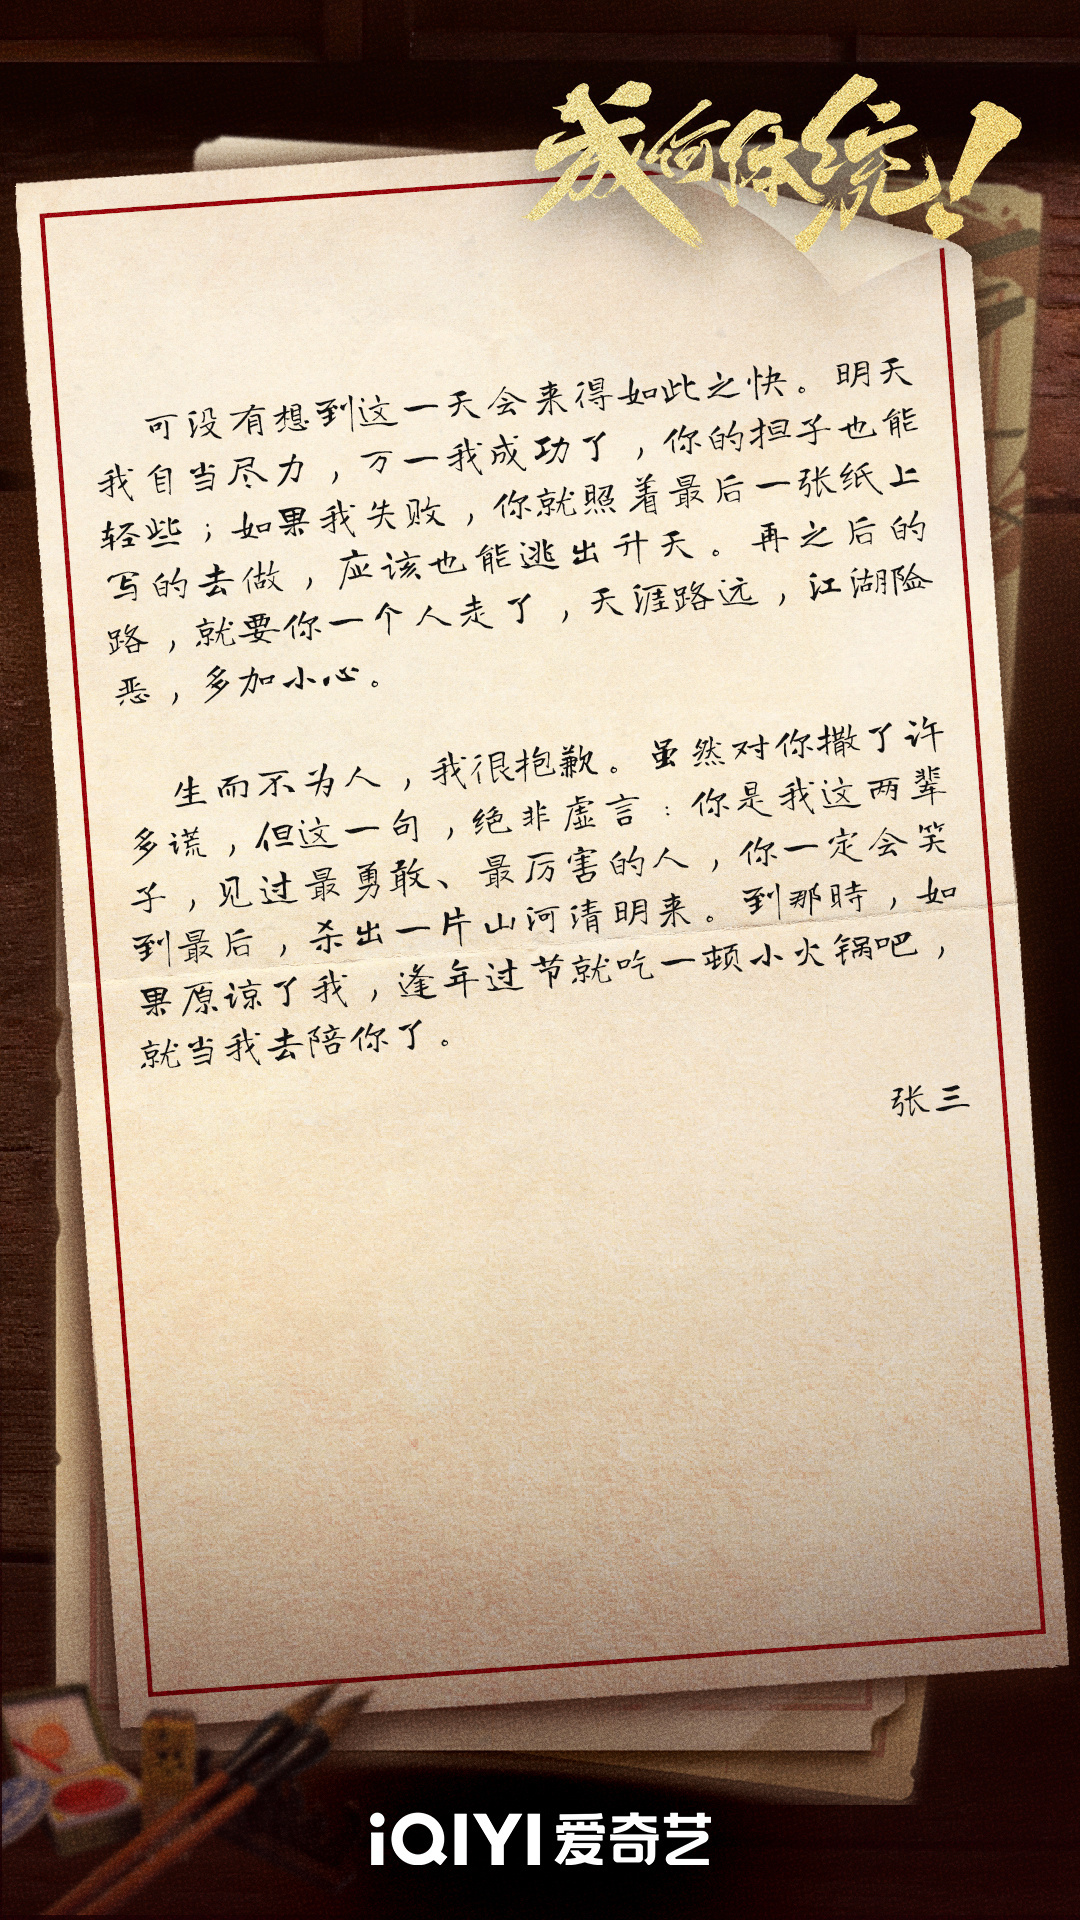 成何体统！
可没有想到这一天会来得如此之快。明天
我自当尽力，万一我成功了，你的担子也能
轻些；如果我失败，你就照着最后一张纸上
写的去做，应该也能逃出升天。再之后的
路，就要你一个人走了，天涯路远，江湖险
恶，多加小心。
生而不为人，我很抱歉。虽然对你撒了许
多谎，但这一句，绝非虚言：你是我这两辈
子，见过最勇敢、最厉害的人，你一定会笑
到最后，杀出一片山河清明来。到那時，如
果原谅了我，逢年过节就吃一顿小火锅吧，
就当我去陪你了。
张三
iQIYI 爱奇艺